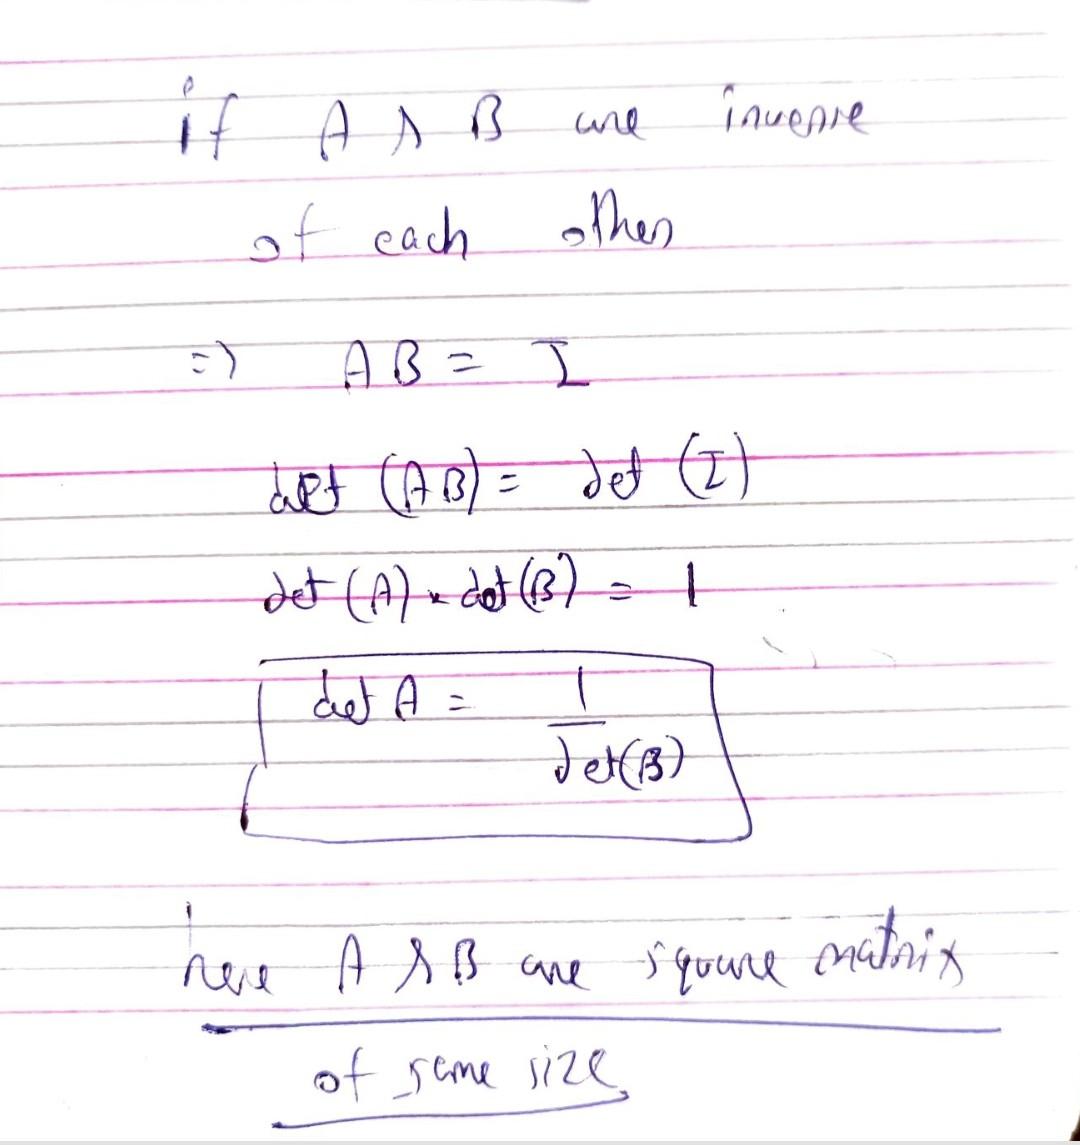 if A & B are inverse
of each other
=> AB = I
det (AB) = det (I)
det (A) × det (B) = 1
det A = 1
det(B)
here A & B are square matrix
of same size